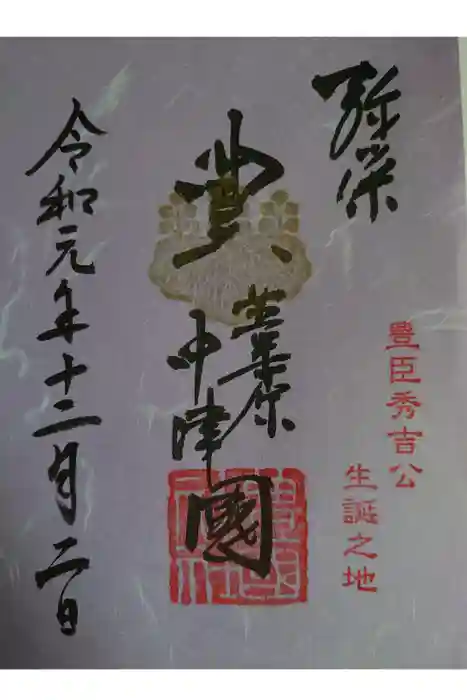 弥栄
豊臣秀吉公
生誕之地
豊
葦原
中津國
令和元年十二月二日